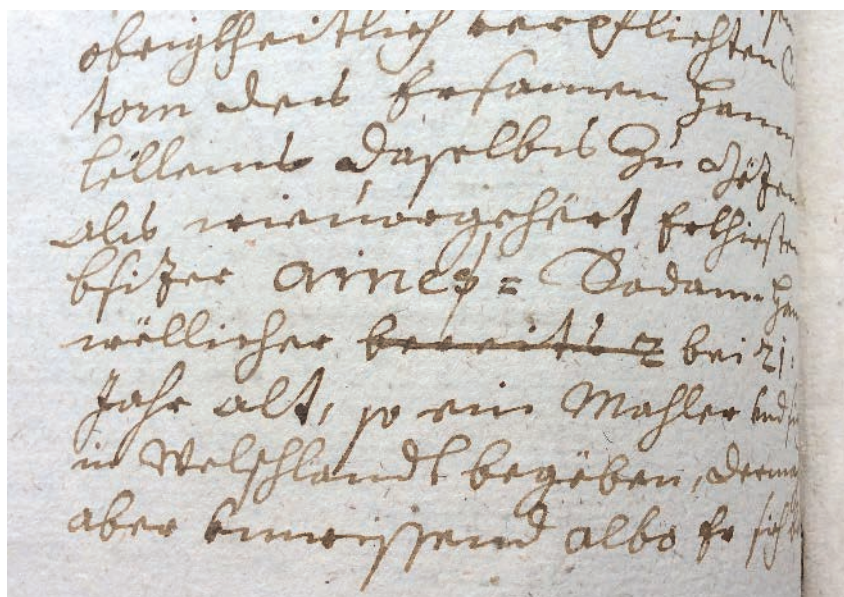 obrigkheitlich verpflichten
torn des Ersamen Hann
Cëllems daselbs zu
als wieuorgehört Erkhiesten
bsizer aines = Sodann Han
wëllicher bereits 2 bei 21:
Jahr alt, so ein Mahler vnd
in Welschlandt begëben, derma
aber vnwissend albo Er sich